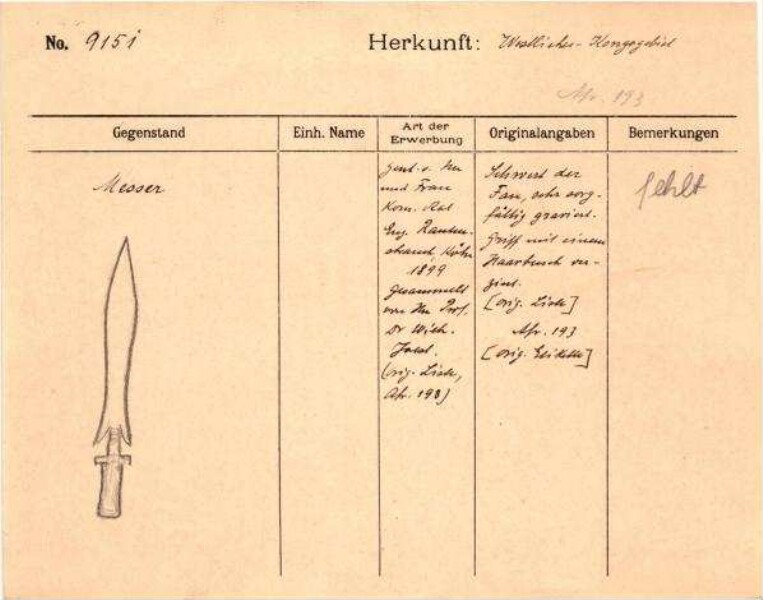 No. 9151
Herkunft: Westliches Kongogebiet
Afr. 193
Gegenstand
Einh. Name
Art der
Erwerbung
Originalangaben
Bemerkungen
Messer
Gesch. v. Hn
und Frau
Kom. Rat
Eug. Rauten-
strauch, Köln
1899
Gesammelt
von Hn Prof.
Dr Wilh.
Joest.
(orig. Liste,
Afr. 193)
Schwert der
Fan, sehr sorg-
fältig graviert.
Griff mit einem
Haarbusch ver-
ziert.
[orig. Liste]
Afr. 193
[orig. Etikette]
fehlt